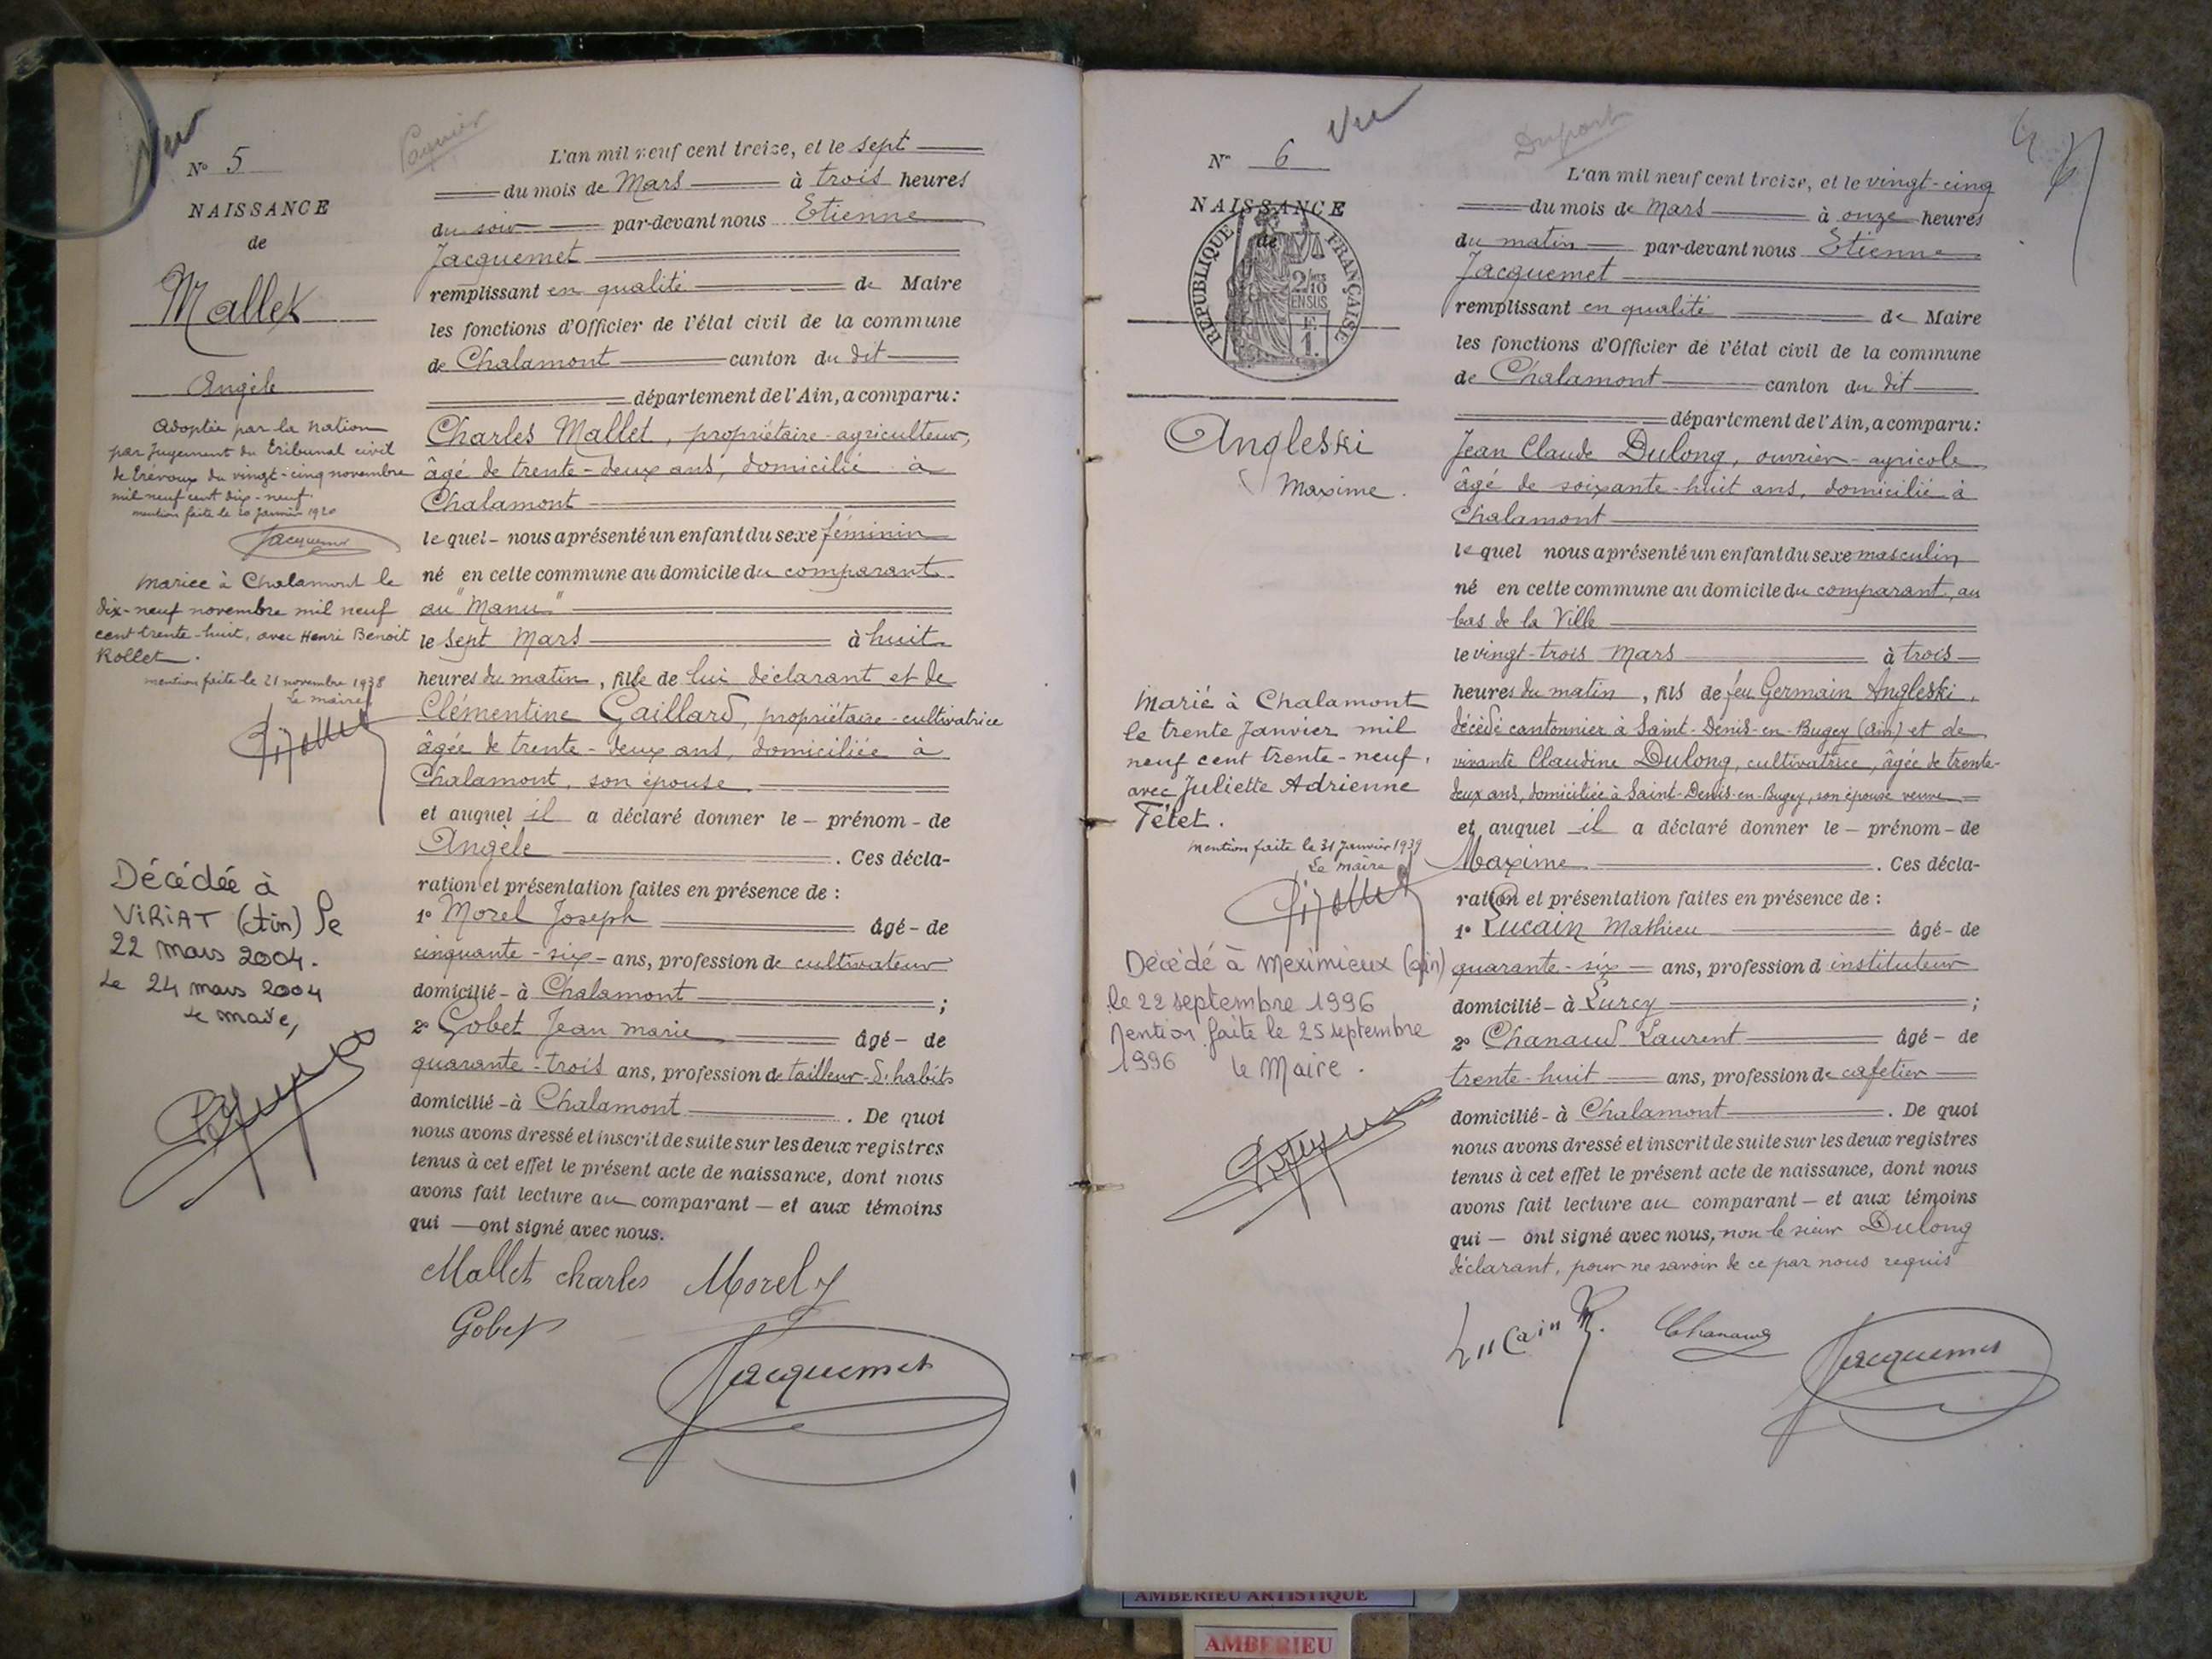 Vu
N° 5
NAISSANCE
de
Mallet
Angèle
Adoptée par la Nation
par Jugement du Tribunal civil
de Trévoux du vingt-cinq novembre
mil neuf cent dix-neuf.
mention faite le 20 Janvier 1920
Jacquemet
Mariée à Chalamont le
dix-neuf novembre mil neuf
cent trente-huit, avec Henri Benoit
Rollet.
mention faite le 21 novembre 1938
Le maire
Décédée à
VIRIAT (Ain) le
22 mars 2004.
Le 24 mars 2004
Le maire,
L'an mil neuf cent treize, et le sept
du mois de Mars à trois heures
du soir par-devant nous Etienne
Jacquemet
remplissant en qualité de Maire
les fonctions d'Officier de l'état civil de la commune
de Chalamont canton du dit
département de l'Ain, a comparu:
Charles Mallet, propriétaire-agriculteur,
âgé de trente-deux ans, domicilié à
Chalamont
lequel nous a présenté un enfant du sexe féminin
né en cette commune au domicile du comparant
au "Manu"
le sept Mars à huit
heures du matin, fille de lui déclarant et de
Clémentine Gaillard, propriétaire-cultivatrice
âgée de trente-deux ans, domiciliée à
Chalamont, son épouse
et auquel il a déclaré donner le prénom de
Angèle. Ces décla-
ration et présentation faites en présence de :
1° Morel Joseph âgé de
cinquante-six ans, profession de cultivateur
domicilié à Chalamont ;
2° Gobet Jean Marie âgé de
quarante-trois ans, profession de tailleur-d'habits
domicilié à Chalamont. De quoi
nous avons dressé et inscrit de suite sur les deux registres
tenus à cet effet le présent acte de naissance, dont nous
avons fait lecture au comparant et aux témoins
qui ont signé avec nous.
Mallet Charles Morel J
Gobet
Jacquemet
Vu
N° 6
NAISSANCE
de
REPUBLIQUE FRANÇAISE
2/10
EN SUS
F.
1.
Angleski
Maxime.
Marié à Chalamont
le trente Janvier mil
neuf cent trente-neuf,
avec Juliette Adrienne
Tétet.
Mention faite le 31 Janvier 1939
Le maire
Décédé à Meximieux (Ain)
le 22 septembre 1996
Mention faite le 25 septembre
1996 le Maire.
Dupont
L'an mil neuf cent treize, et le vingt-cinq
du mois de Mars à onze heures
du matin par-devant nous Etienne
Jacquemet
remplissant en qualité de Maire
les fonctions d'Officier de l'état civil de la commune
de Chalamont canton du dit
département de l'Ain, a comparu:
Jean Claude Dulong, ouvrier-agricole
âgé de soixante-huit ans, domicilié à
Chalamont
lequel nous a présenté un enfant du sexe masculin
né en cette commune au domicile du comparant, au
bas de la Ville
le vingt-trois Mars à trois
heures du matin, fils de feu Germain Angleski,
décédé cantonnier à Saint-Denis-en-Bugey (Ain) et de
vivante Claudine Dulong, cultivatrice, âgée de trente-
deux ans, domiciliée à Saint-Denis-en-Bugey, son épouse veuve
et auquel il a déclaré donner le prénom de
Maxime. Ces décla-
ration et présentation faites en présence de :
1° Lucain Mathieu âgé de
quarante-six ans, profession d instituteur
domicilié à Lurcy ;
2° Chanaud Laurent âgé de
trente-huit ans, profession de cafetier
domicilié à Chalamont. De quoi
nous avons dressé et inscrit de suite sur les deux registres
tenus à cet effet le présent acte de naissance, dont nous
avons fait lecture au comparant et aux témoins
qui ont signé avec nous, non le sieur Dulong
déclarant, pour ne savoir de ce par nous requis
Lucain M. Chanaud
Jacquemet
AMBERIEU ARTISTIQUE
AMBERIEU